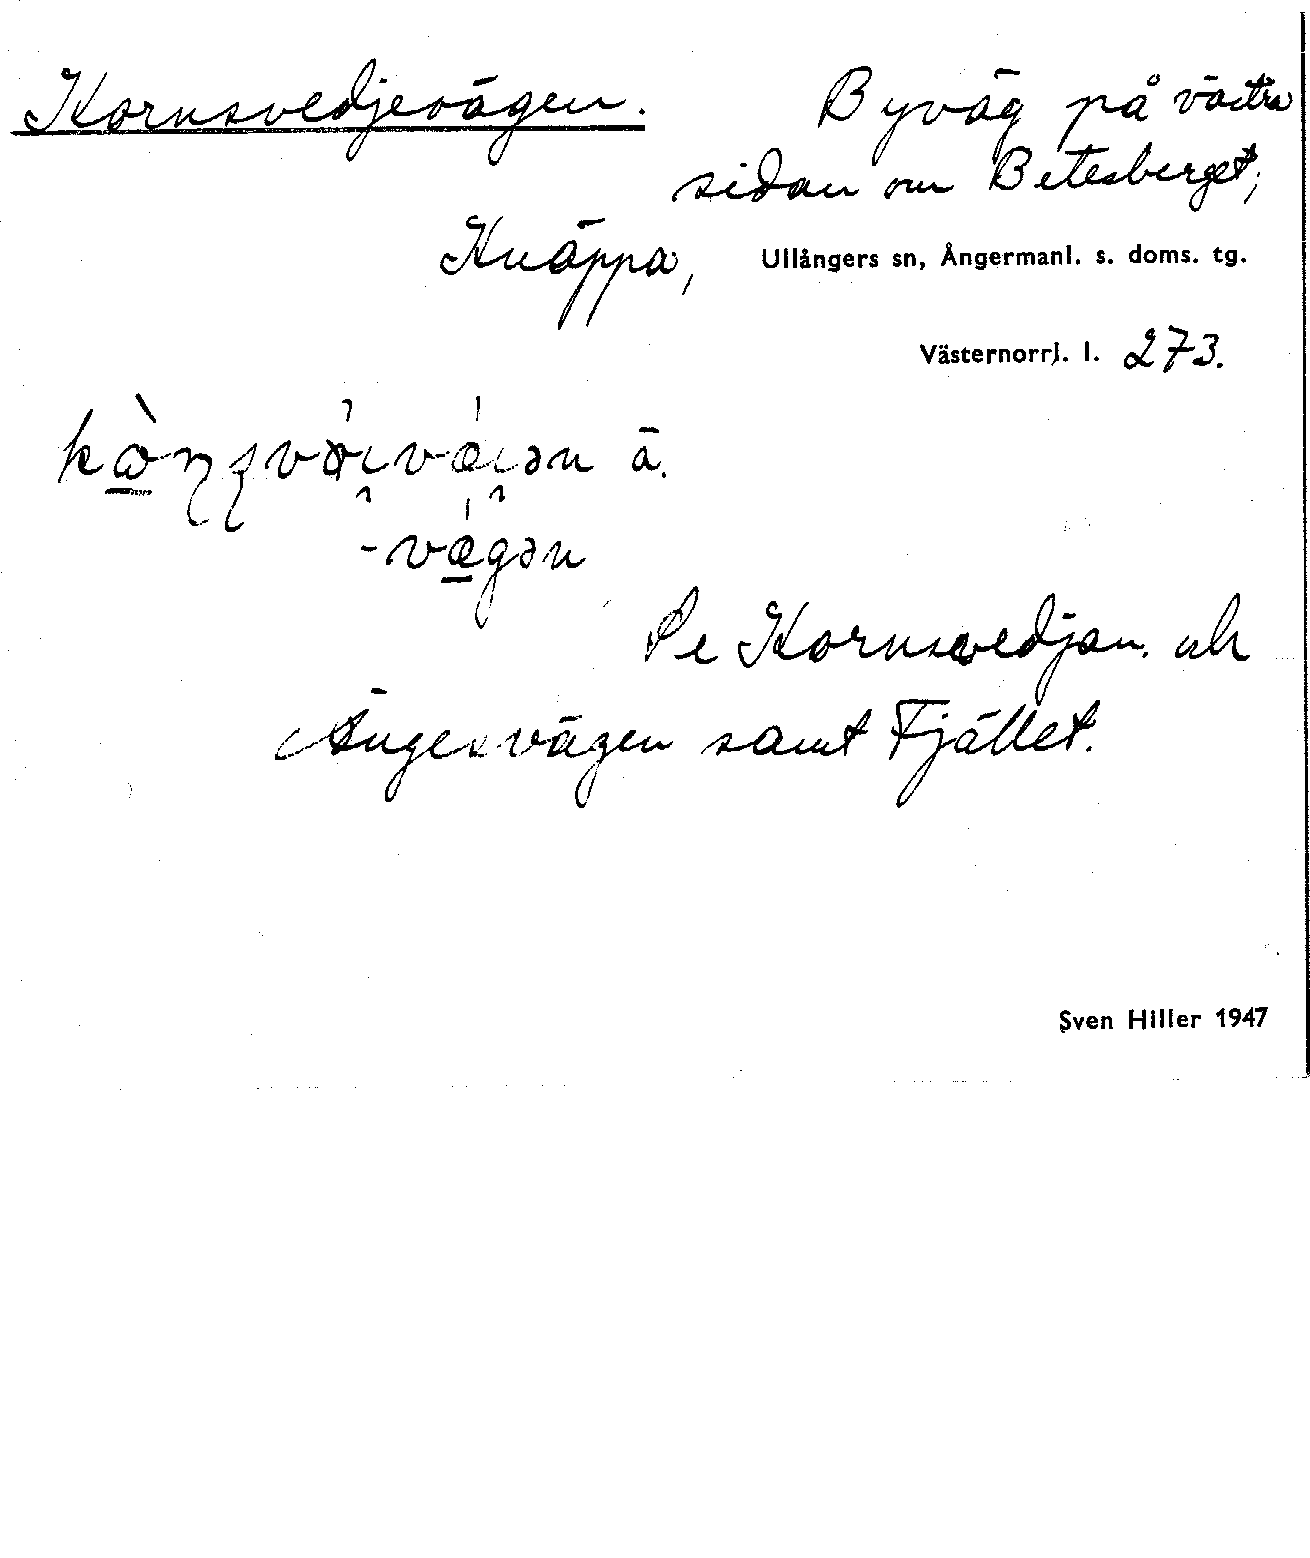 Kornsvedjevägen. Byväg på västra
sidan om Betesberget;
Knäppa, Ullångers sn, Ångermanl. s. doms. tg.
Västernorrl. l. 273.
ä.
-vægən
Se Kornsvedjan och
Ängesvägen samt Fjället.
Sven Hiller 1947